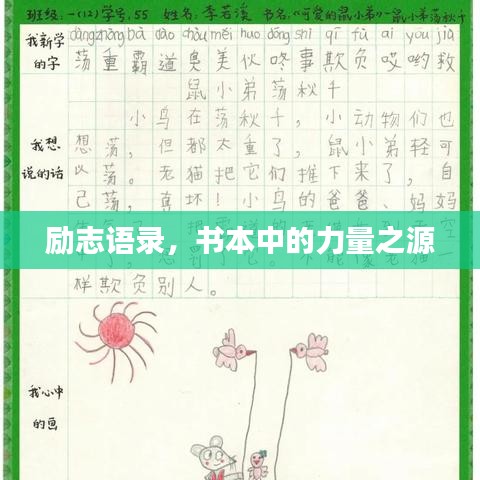 班级:一(12)学号,55 姓名:李若溪 书名:《可爱的鼠小弟》—鼠小弟荡秋千
我新学
的字
dàng zhòng bà dào chòu měi huo dōng shì qī fù ai you jiù
荡重霸道臭美伙咚事欺负哎哟救
鼠小弟荡秋千
我想
说的话
小鸟在荡秋千,小动物们也
想荡,但都太重了,鼠小弟轻可
以荡。老猫把它们推下来了,自
己荡,真坏!小鸟的爸爸、妈妈
励志语录,书本中的力量之源
样欺负别人。
我心中
的画